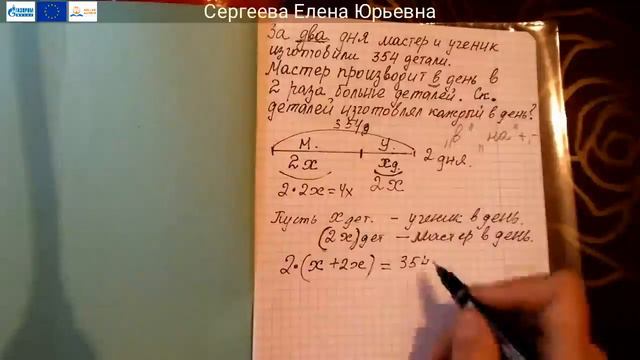 Сергеева Елена Юрьевна
За два дня мастер и ученик
изготовили 354 детали.
Мастер производит в день в
2 раза больше деталей. Ск.
деталей изготовлял каждый в день?
354д
М. У.
2х хд.
2 дня.
2х
"в" "на" +,-
2•2х=4х
Пусть х дет. - ученик в день.
(2х)дет — мастер в день.
2•(х+2х) = 354